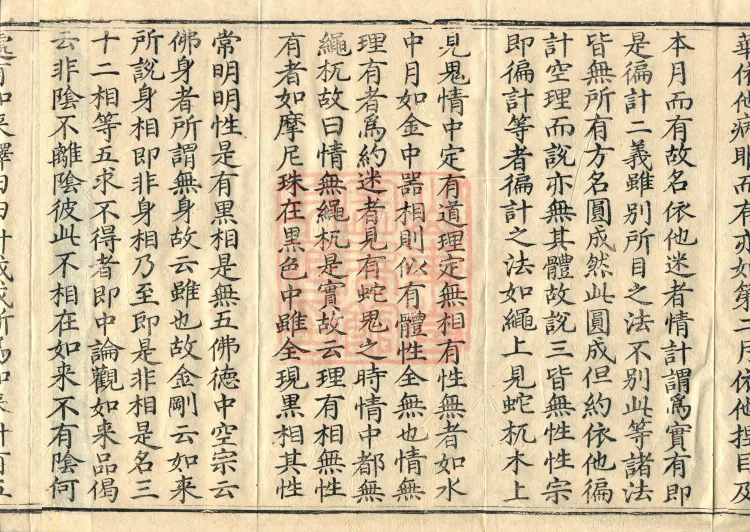 華依他病眼而有亦如第二月依他捏目及
本月而有故名依他迷者情計謂爲實有即
是徧計二義雖別所目之法不別此等諸法
皆無所有方名圓成然此圓成但約依他徧
計空理而說亦無其體故說三皆無性性宗
即徧計等者徧計之法如繩上見蛇杌木上
見鬼情中定有道理定無相有性無者如水
中月如金中器相則似有體性全無也情無
理有者爲約迷者見有蛇鬼之時情中都無
繩杌故曰情無繩杌是實故云理有相無性
有者如摩尼珠在黑色中雖全現黑相其性
常明明性是有黑相是無五佛德中空宗云
佛身者所謂無身故云雖也故金剛云如來
所說身相即非身相乃至即是非相是名三
十二相等五求不得者即中論觀如來品偈
云非陰不離陰彼此不相在如來不有陰何
處有如來釋曰